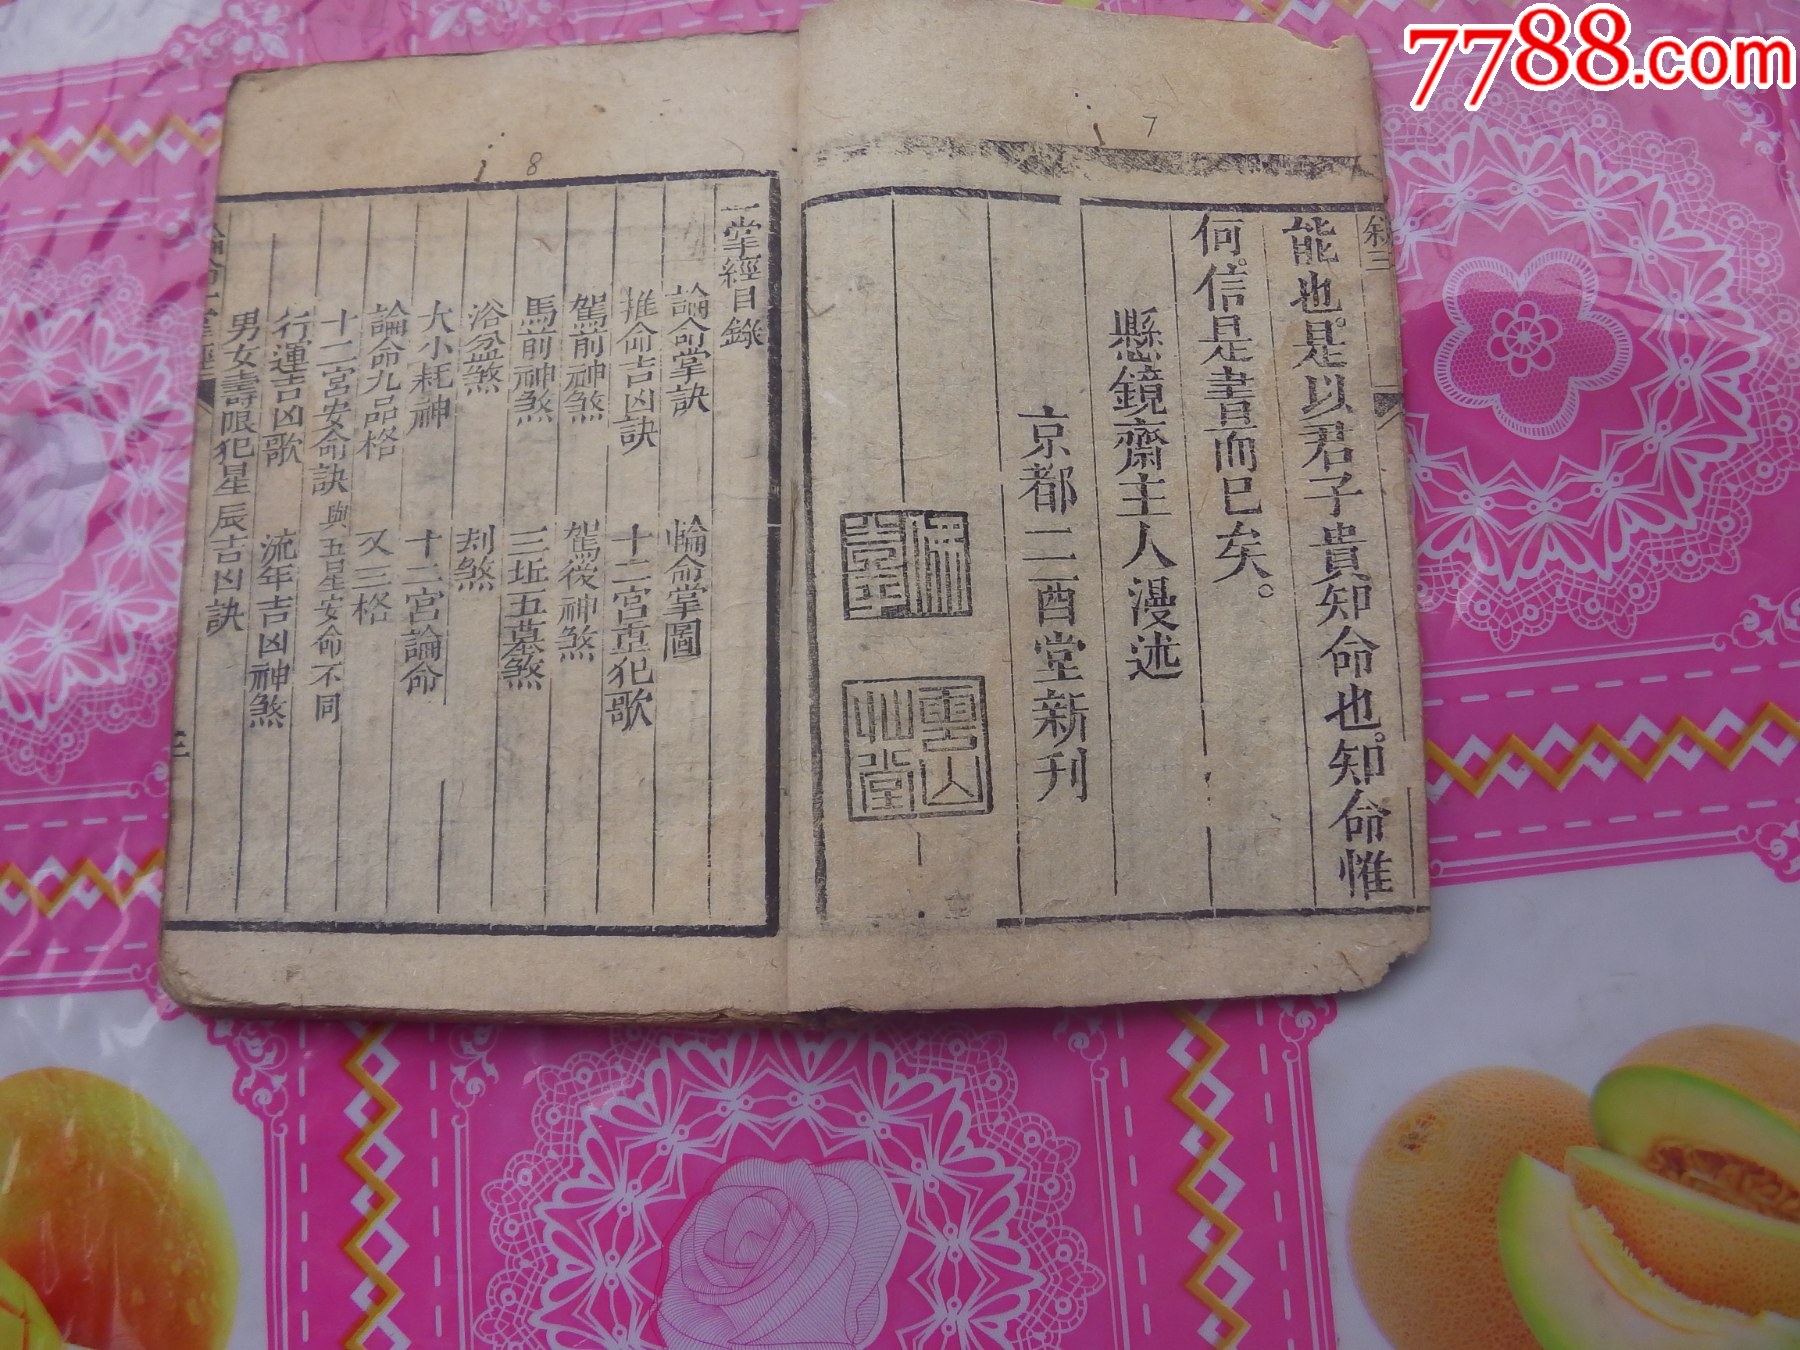 7788.com
7
敘三
能也是以君子貴知命也知命惟
何信是書而已矣。
懸鏡齋主人漫述
京都二酉堂新刊
8
一掌經目錄
論命掌訣 輪命掌圖
推命吉凶訣 十二宮重犯歌
駕前神煞 駕後神煞
馬前神煞 三坵五墓煞
浴盆煞 刦煞
大小耗神 十二宮論命
論命九品格 又三格
十二宮安命訣與五星安命不同
行運吉凶歌 流年吉凶神煞
男女壽限犯星辰吉凶訣
三